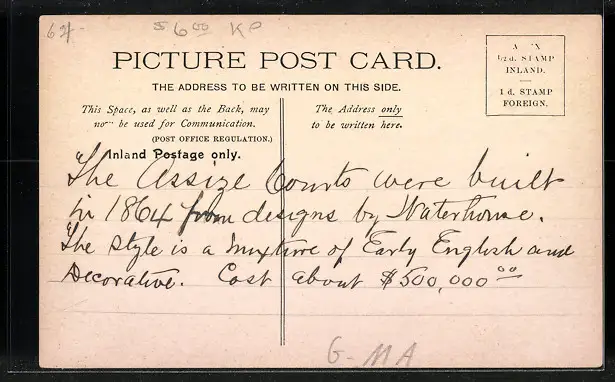 64 $6.00 KP
PICTURE POST CARD.
THE ADDRESS TO BE WRITTEN ON THIS SIDE.
This Space, as well as the Back, may
now be used for Communication.
(POST OFFICE REGULATION.)
Inland Postage only.
The Address only
to be written here.
A
½d. STAMP
INLAND.
1d. STAMP
FOREIGN.
The Assize Courts were built
in 1864 from designs by Waterhouse.
The style is a mixture of Early English and
Decorative. Cost about $500,000 00
G- MA